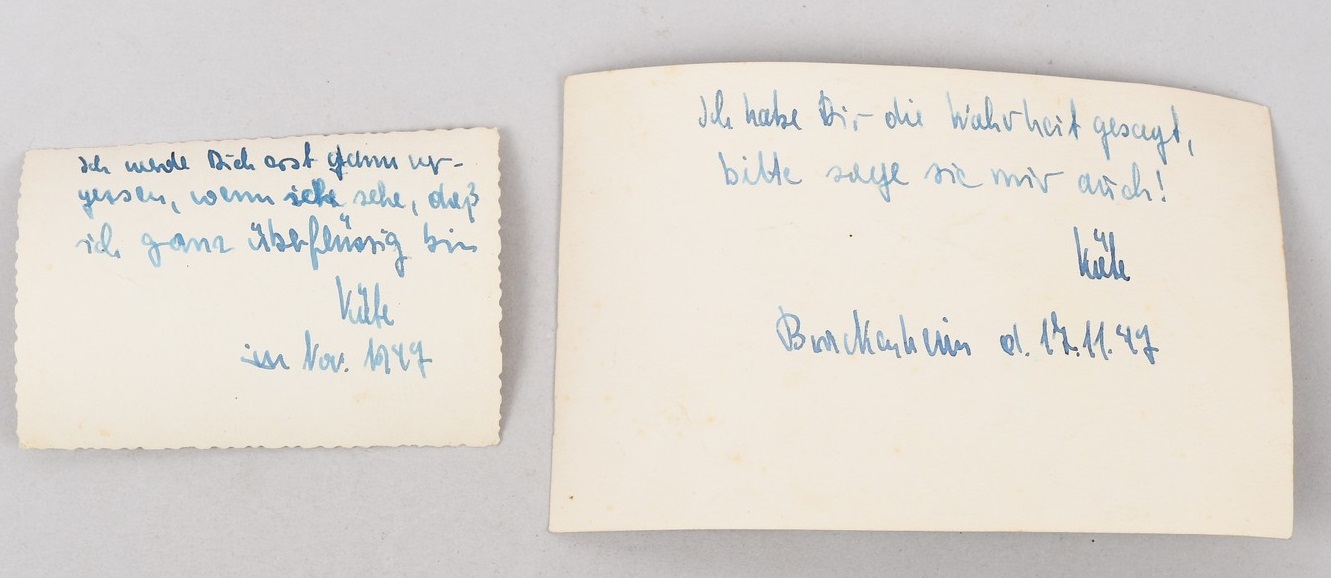 Ich werde Dich erst dann ver-
gessen, wenn ich sehe, daß
ich ganz überflüssig bin
Käte
im Nov. 1947
Ich habe Dir die Wahrheit gesagt,
bitte sage sie mir auch!
Käte
d. 17.11.47